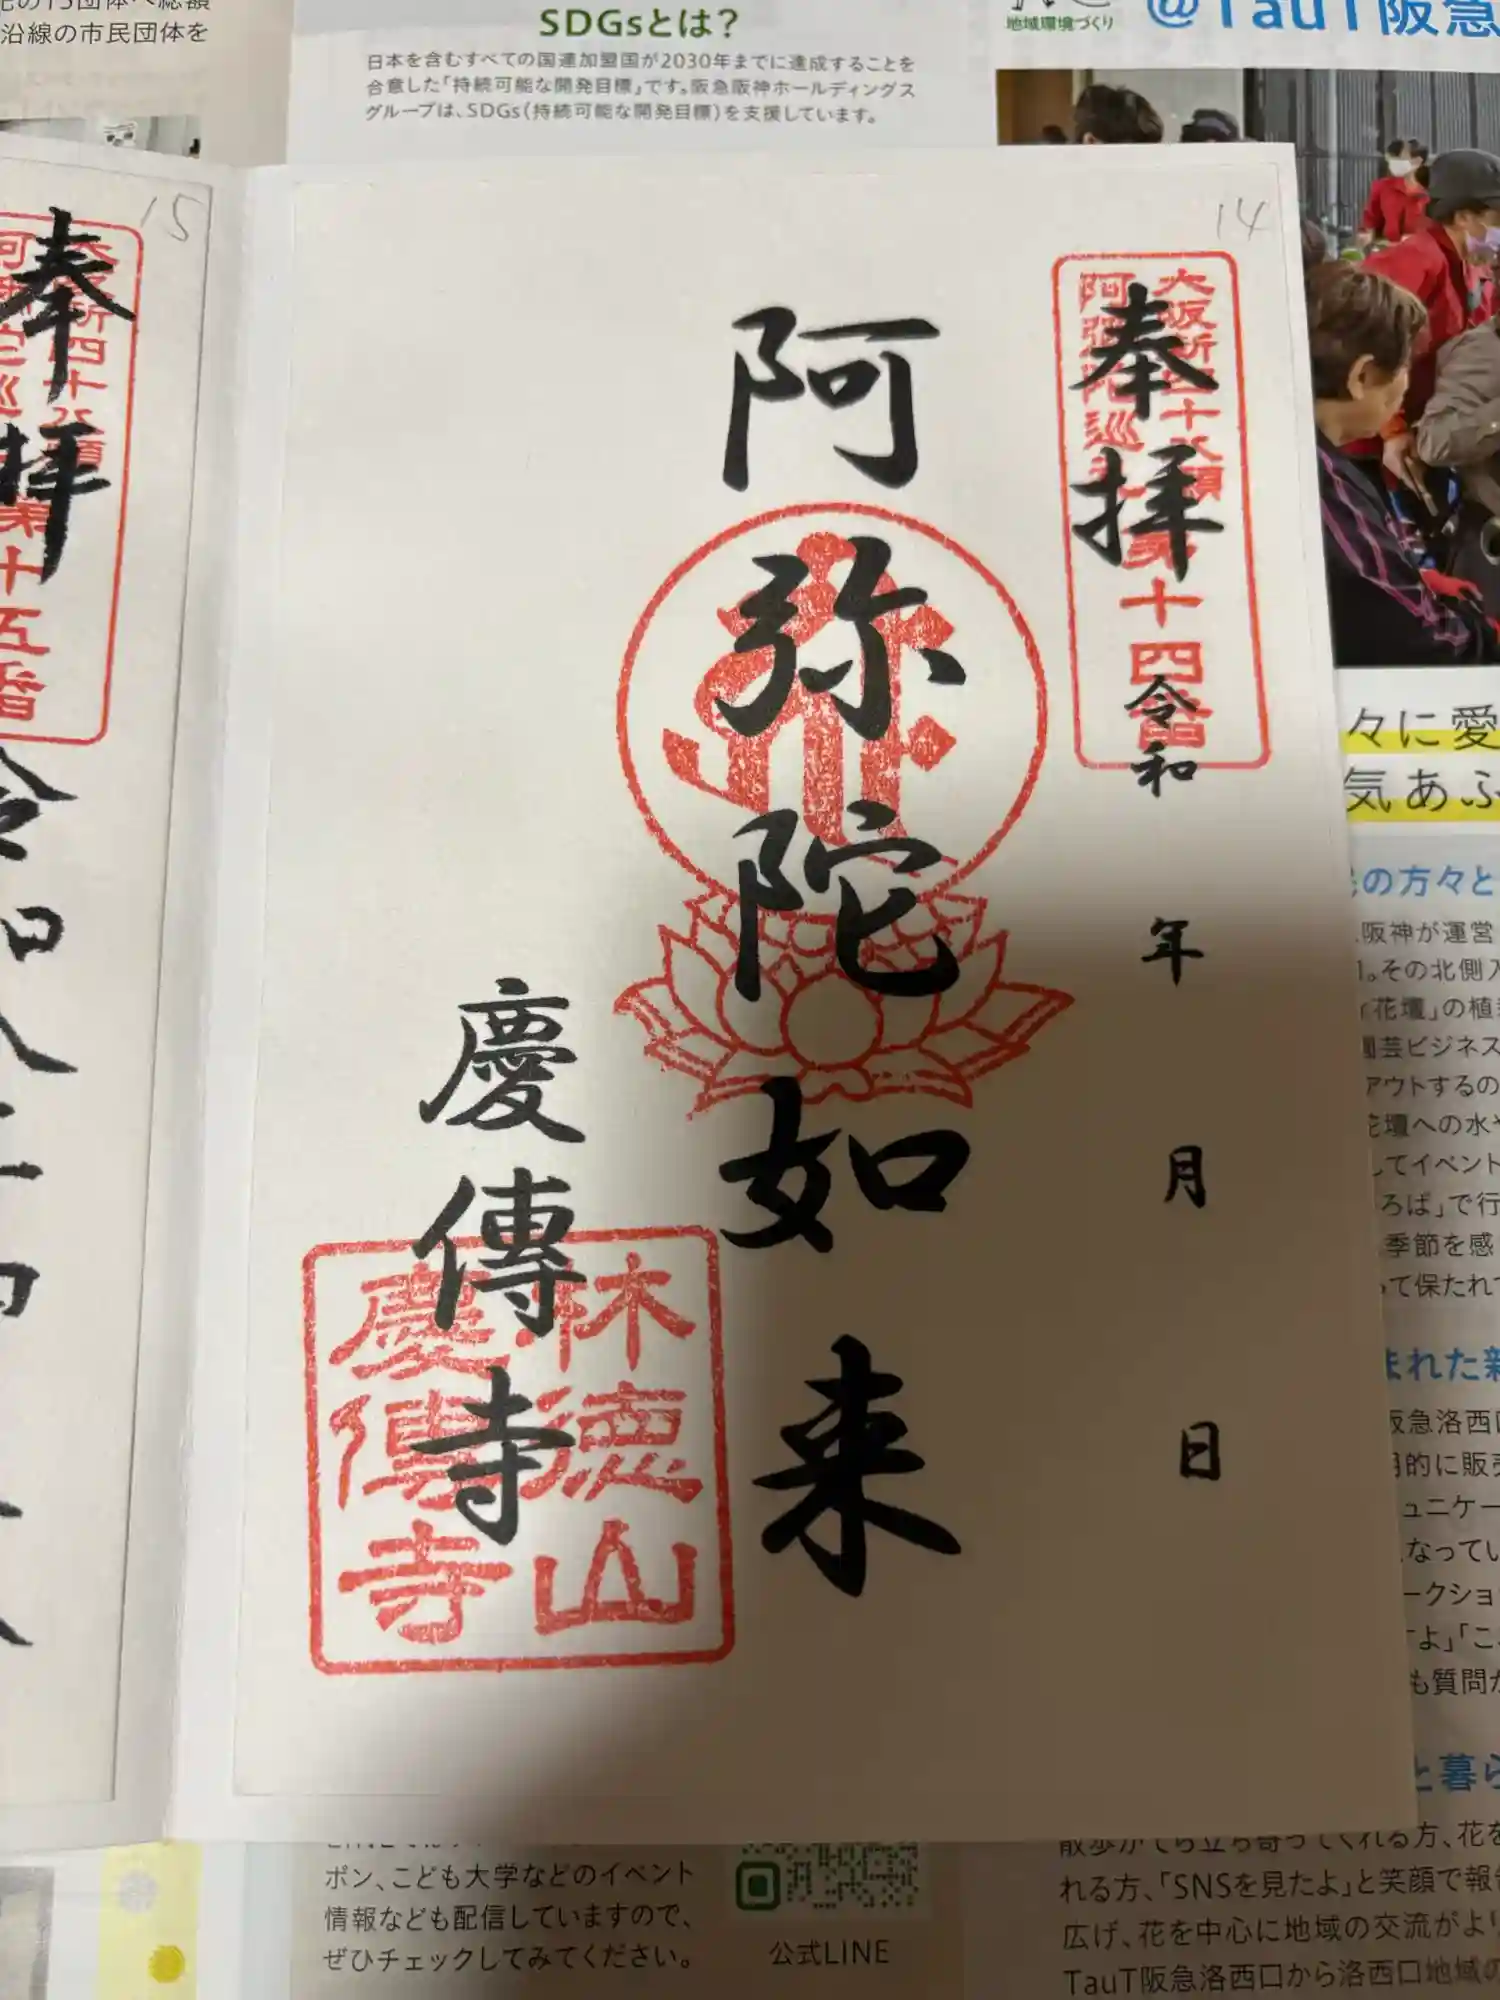 沿線の市民団体を
SDGsとは？
日本を含むすべての国連加盟国が2030年までに達成することを
合意した「持続可能な開発目標」です。阪急阪神ホールディングス
グループは、SDGs（持続可能な開発目標）を支援しています。
地域環境づくり
@TauT阪急
14
奉拝
大阪新四十八願
阿弥陀巡礼
第十四番
令和 年 月 日
阿弥陀如来
慶傳寺
林徳山
慶傳寺
15
奉拝
第十五番
々に愛
気あふ
の方々と
阪神が運営
。その北側入
花壇」の植
園芸ビジネス
アウトするの
花壇への水や
してイベント
ろば」で行
季節を感
って保たれて
まれた新
阪急洛西口
的に販売
ュニケー
なってい
ークショ
すよ」「こ
も質問が
と暮ら
ポン、こども大学などのイベント
情報なども配信していますので、
ぜひチェックしてみてください。
公式LINE
散歩がてら立ち寄ってくれる方、花を
れる方、「SNSを見たよ」と笑顔で報告
広げ、花を中心に地域の交流がより
TauT阪急洛西口から洛西口地域の